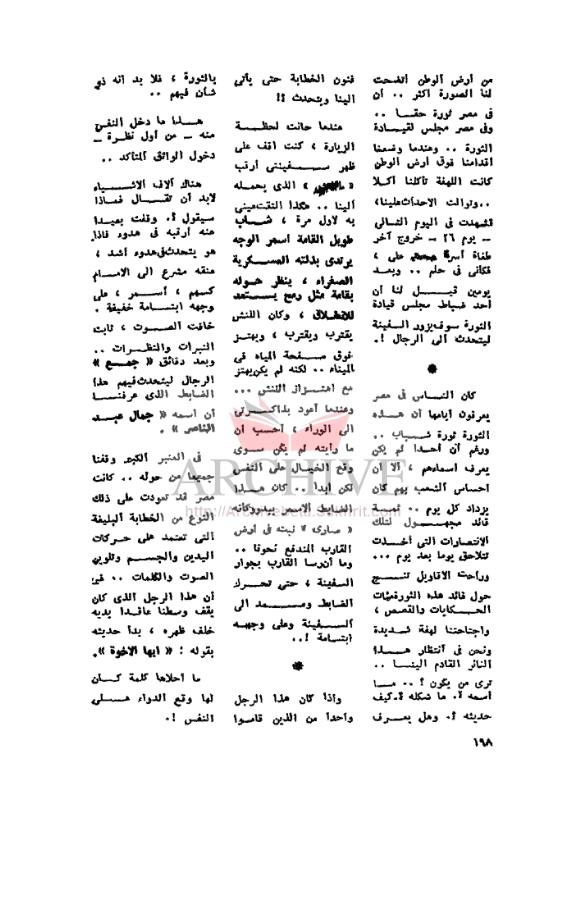 من أرض الوطن اتضحت
لنا الصورة أكثر .. أن
في مصر ثورة حقا ..
وفي مصر مجلس لقيادة
الثورة .. وعندما وضعنا
اقدامنا فوق أرض الوطن
كانت اللهفة تأكلنا أكلا
..وتوالت الاحداث علينا،
فشهدت في اليوم التالي
ـ يوم ٢٦ ـ خروج آخر
طغاة أسرة محمد على ،
فكأني في حلم .. وبعد
يومين قيل لنا أن
أحد ضباط مجلس قيادة
الثورة سوف يزور السفينة
ليتحدث الى الرجال !.
*
كان الناس في مصر
يعرفون أيامها أن هذه
الثورة ثورة شباب ..
ورغم أن أحدا لم يكن
يعرف اسماءهم ، ألا أن
احساس الشعب بهم كان
يزداد كل يوم .. ثمة
قائد مجهول لتلك
الانتصارات التي أخذت
تتلاحق يوما بعد يوم ...
وراحت الأقاويل تنسج
حول قائد هذه الثورة مئات
الحكايات والقصص ،
واجتاحتنا لهفة شديدة
ونحن في انتظار هذا
الثائر القادم الينا ..
ترى من يكون ؟ .. ما
اسمه ؟. ما شكله ؟.كيف
حديثه ؟. وهل يعرف
فنون الخطابة حتى يأتي
الينا ويتحدث ؟!
عندما حانت لحظة
الزيارة ، كنت أقف على
ظهر سفينتي أرقب
الذي يحمله
ألينا .. هكذا التقت عيني
به لاول مرة ، شاب
طويل القامة أسمر الوجه
يرتدي بذلته العسكرية
الصفراء ، ينظر حوله
بقامة مثل رمح يستعد
للانطلاق ، وكان اللنش
يقترب ويقترب ، ويهتز
فوق صفحة المياه في
الميناء .. لكنه لم يكن يهتز
مع اهتزاز اللنش ...
وعندما أعود بذاكرتي
الى الوراء ، أحسب أن
ما رأيته لم يكن سوى
وقع الخيال على النفس
لكن أبدا .. كان هذا
الضابط الاسمر يبدو وكأنه
« صارى » نبتة في أرض
القارب المندفع نحونا ..
وما أن رسا القارب بجوار
السفينة ، حتى تحرك
الضابط وصعد الى
السفينة وعلى وجهه
ابتسامة !..
*
واذا كان هذا الرجل
واحدا من الذين قاموا
بالثورة ، فلا بد انه ذي
شأن فيهم ..
هذا ما دخل النفس
منه ـ من أول نظرة ـ
دخول الواثق المتأكد ..
هناك آلاف الاشياء
لابد أن تقال فماذا
سيقول ؟. وقفت بعيدا
عنه أرقبه في هدوء فاذا
هو يتحدث في هدوء أشد ،
عنقه مشرع الى الامام
كسهم ، أسمر ، على
وجهه ابتسامة خفيفة .
خافت الصوت ، ثابت
النبرات والنظرات ..
وبعد دقائق « جمع »
الرجال ليتحدث فيهم هذا
الضابط الذي عرفنا
أن اسمه « جمال عبد
الناصر » .
في العنبر الكبير وقفنا
جميعا من حوله .. كانت
مصر قد تعودت على ذلك
النوع من الخطابة البليغة
التي تعتمد على حركات
اليدين والجسم وتلوين
الصوت والكلمات .. غير
أن هذا الرجل الذي كان
يقف وسطنا عاقدا يديه
خلف ظهره ، بدأ حديثه
بقوله : « أيها الاخوة ».
ما أحلاها كلمة كان
لها وقع الدواء على
النفس !.
١٩٨
ARCHIVE